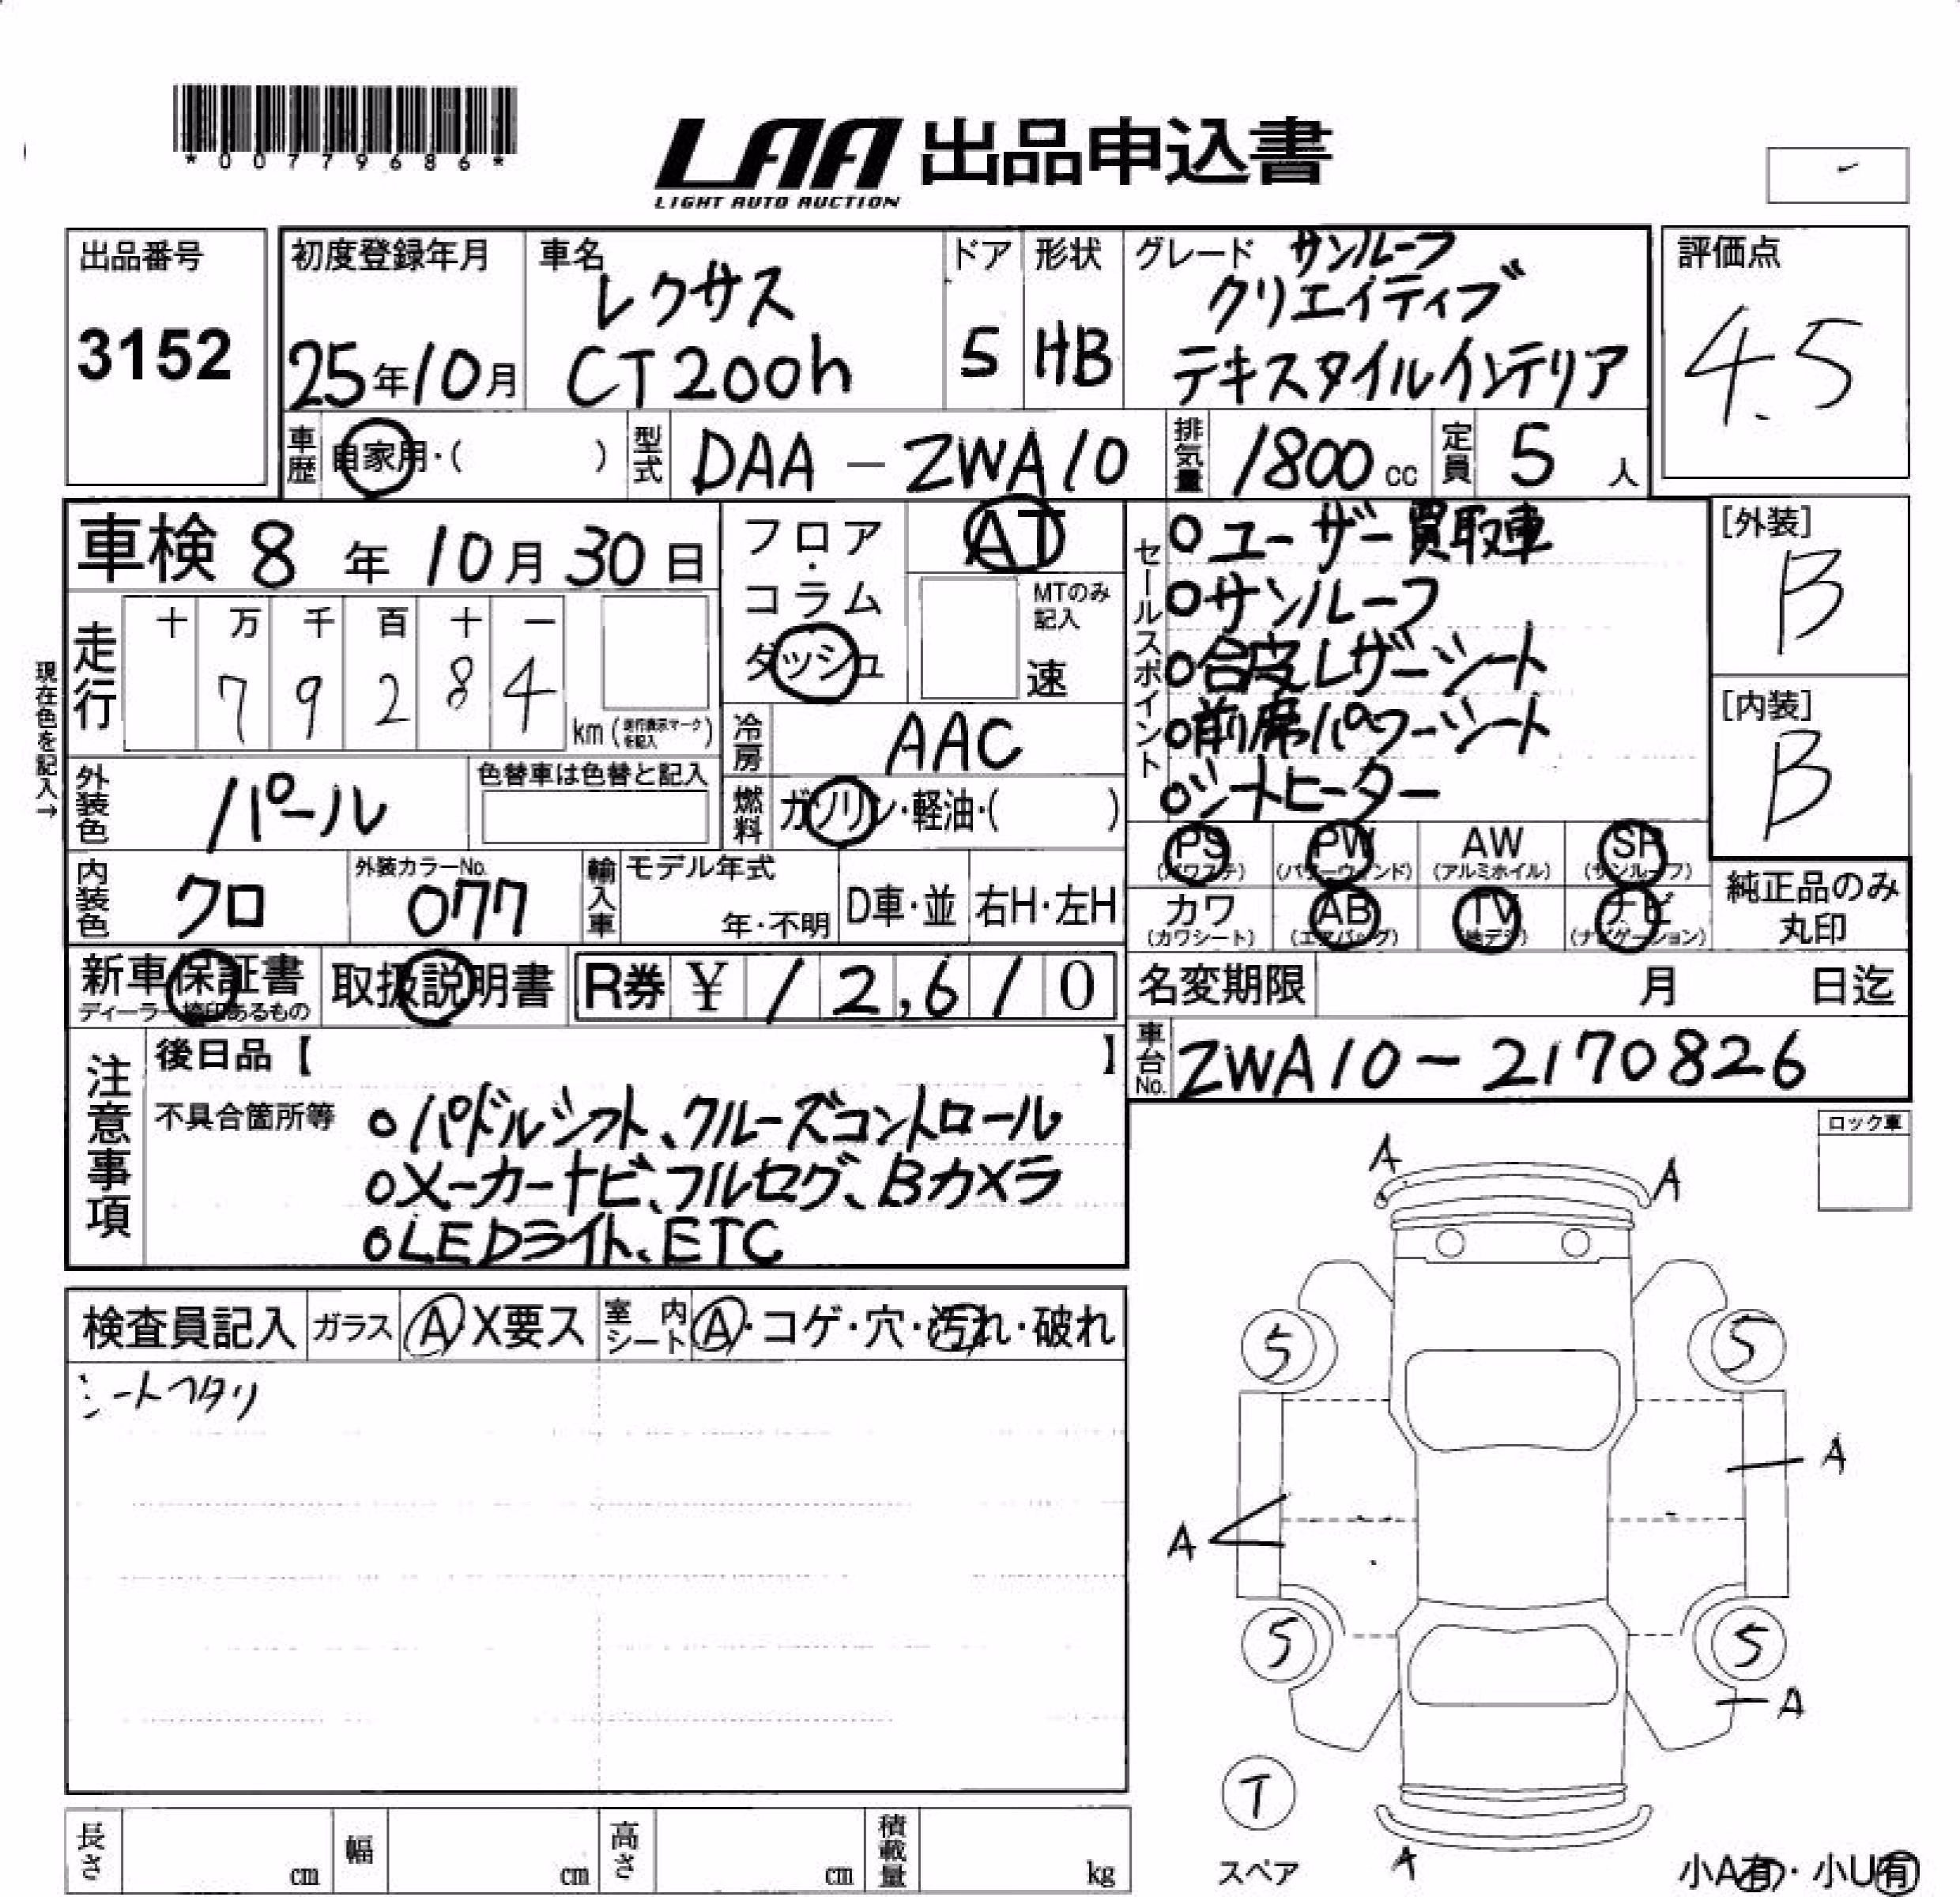 *00779686*
LAA 出品申込書
LIGHT AUTO AUCTION
出品番号
3152
初度登録年月
25年10月
車名
レクサス
CT200h
ドア
5
形状
HB
グレード サンルーフ
クリエイティブ
テキスタイルインテリア
評価点
4.5
車歴 自家用・( )
型式 DAA-ZWA10
排気量 1800cc
定員 5人
車検 8年10月30日
現在色を記入→
走行
十 万 千 百 十 一
7 9 2 8 4
km(走行表示マークを記入)
フロア・
コラム
ダッシュ
AT
MTのみ
記入
速
冷房 AAC
燃料 ガソリン・軽油・( )
外装色 パール
色替車は色替と記入
内装色 クロ
外装カラーNo.
077
輸入車 モデル年式
年・不明
D車・並
右H・左H
セールスポイント
○ユーザー買取車
○サンルーフ
○合皮レザーシート
○前席パワーシート
○シートヒーター
[外装]
B
[内装]
B
PS
(パワステ)
PW
(パワーウィンド)
AW
(アルミホイル)
SR
(サンルーフ)
カワ
(カワシート)
AB
(エアバッグ)
TV
(地デジ)
ナビ
(ナビゲーション)
純正品のみ
丸印
新車保証書
ディーラー捺印あるもの
取扱説明書
R券 ¥ 12,610
名変期限 月 日迄
車台No. ZWA10-2170826
注意事項
後日品【 】
不具合箇所等
○パドルシフト、クルーズコントロール
○メーカーナビ、フルセグ、Bカメラ
○LEDライト、ETC
ロック車
検査員記入
ガラス A X要ス
室内シート A・コゲ・穴・汚れ・破れ
シートヘタリ
A A
5 5
A
A
5 5
A
T
スペア
A
小A有・小U有
長さ cm
幅 cm
高さ cm
積載量 kg